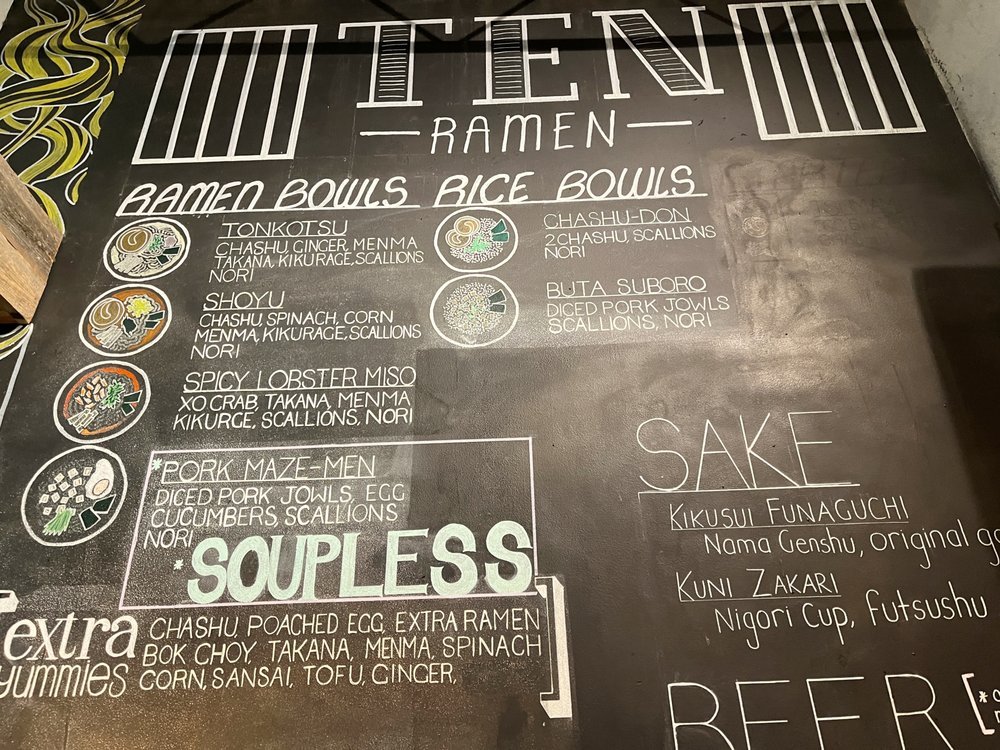 TEN
RAMEN
RAMEN BOWLS
TONKOTSU
CHASHU, GINGER, MENMA
TAKANA, KIKURAGE, SCALLIONS
NORI
SHOYU
CHASHU, SPINACH, CORN
MENMA, KIKURAGE, SCALLIONS
NORI
SPICY LOBSTER MISO
XO CRAB, TAKANA, MENMA
KIKURGE, SCALLIONS, NORI
*PORK MAZE-MEN
DICED PORK JOWLS, EGG
CUCUMBERS, SCALLIONS
NORI
*SOUPLESS
extra
yummies
CHASHU, POACHED EGG, EXTRA RAMEN
BOK CHOY, TAKANA, MENMA, SPINACH
CORN, SANSAI, TOFU, GINGER,
RICE BOWLS
CHASHU-DON
2 CHASHU, SCALLIONS
NORI
BUTA SUBORO
DICED PORK JOWLS
SCALLIONS, NORI
SAKE
KIKUSUI FUNAGUCHI
Nama Genshu, original
KUNI ZAKARI
Nigori Cup, Futsushu
BEER